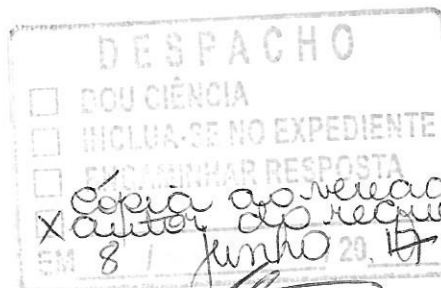 DESPACHO
DOU CIÊNCIA
INCLUA-SE NO EXPEDIENTE
ENCAMINHAR RESPOSTA
X Cópia ao
autor do
EM 8 / junho / 20